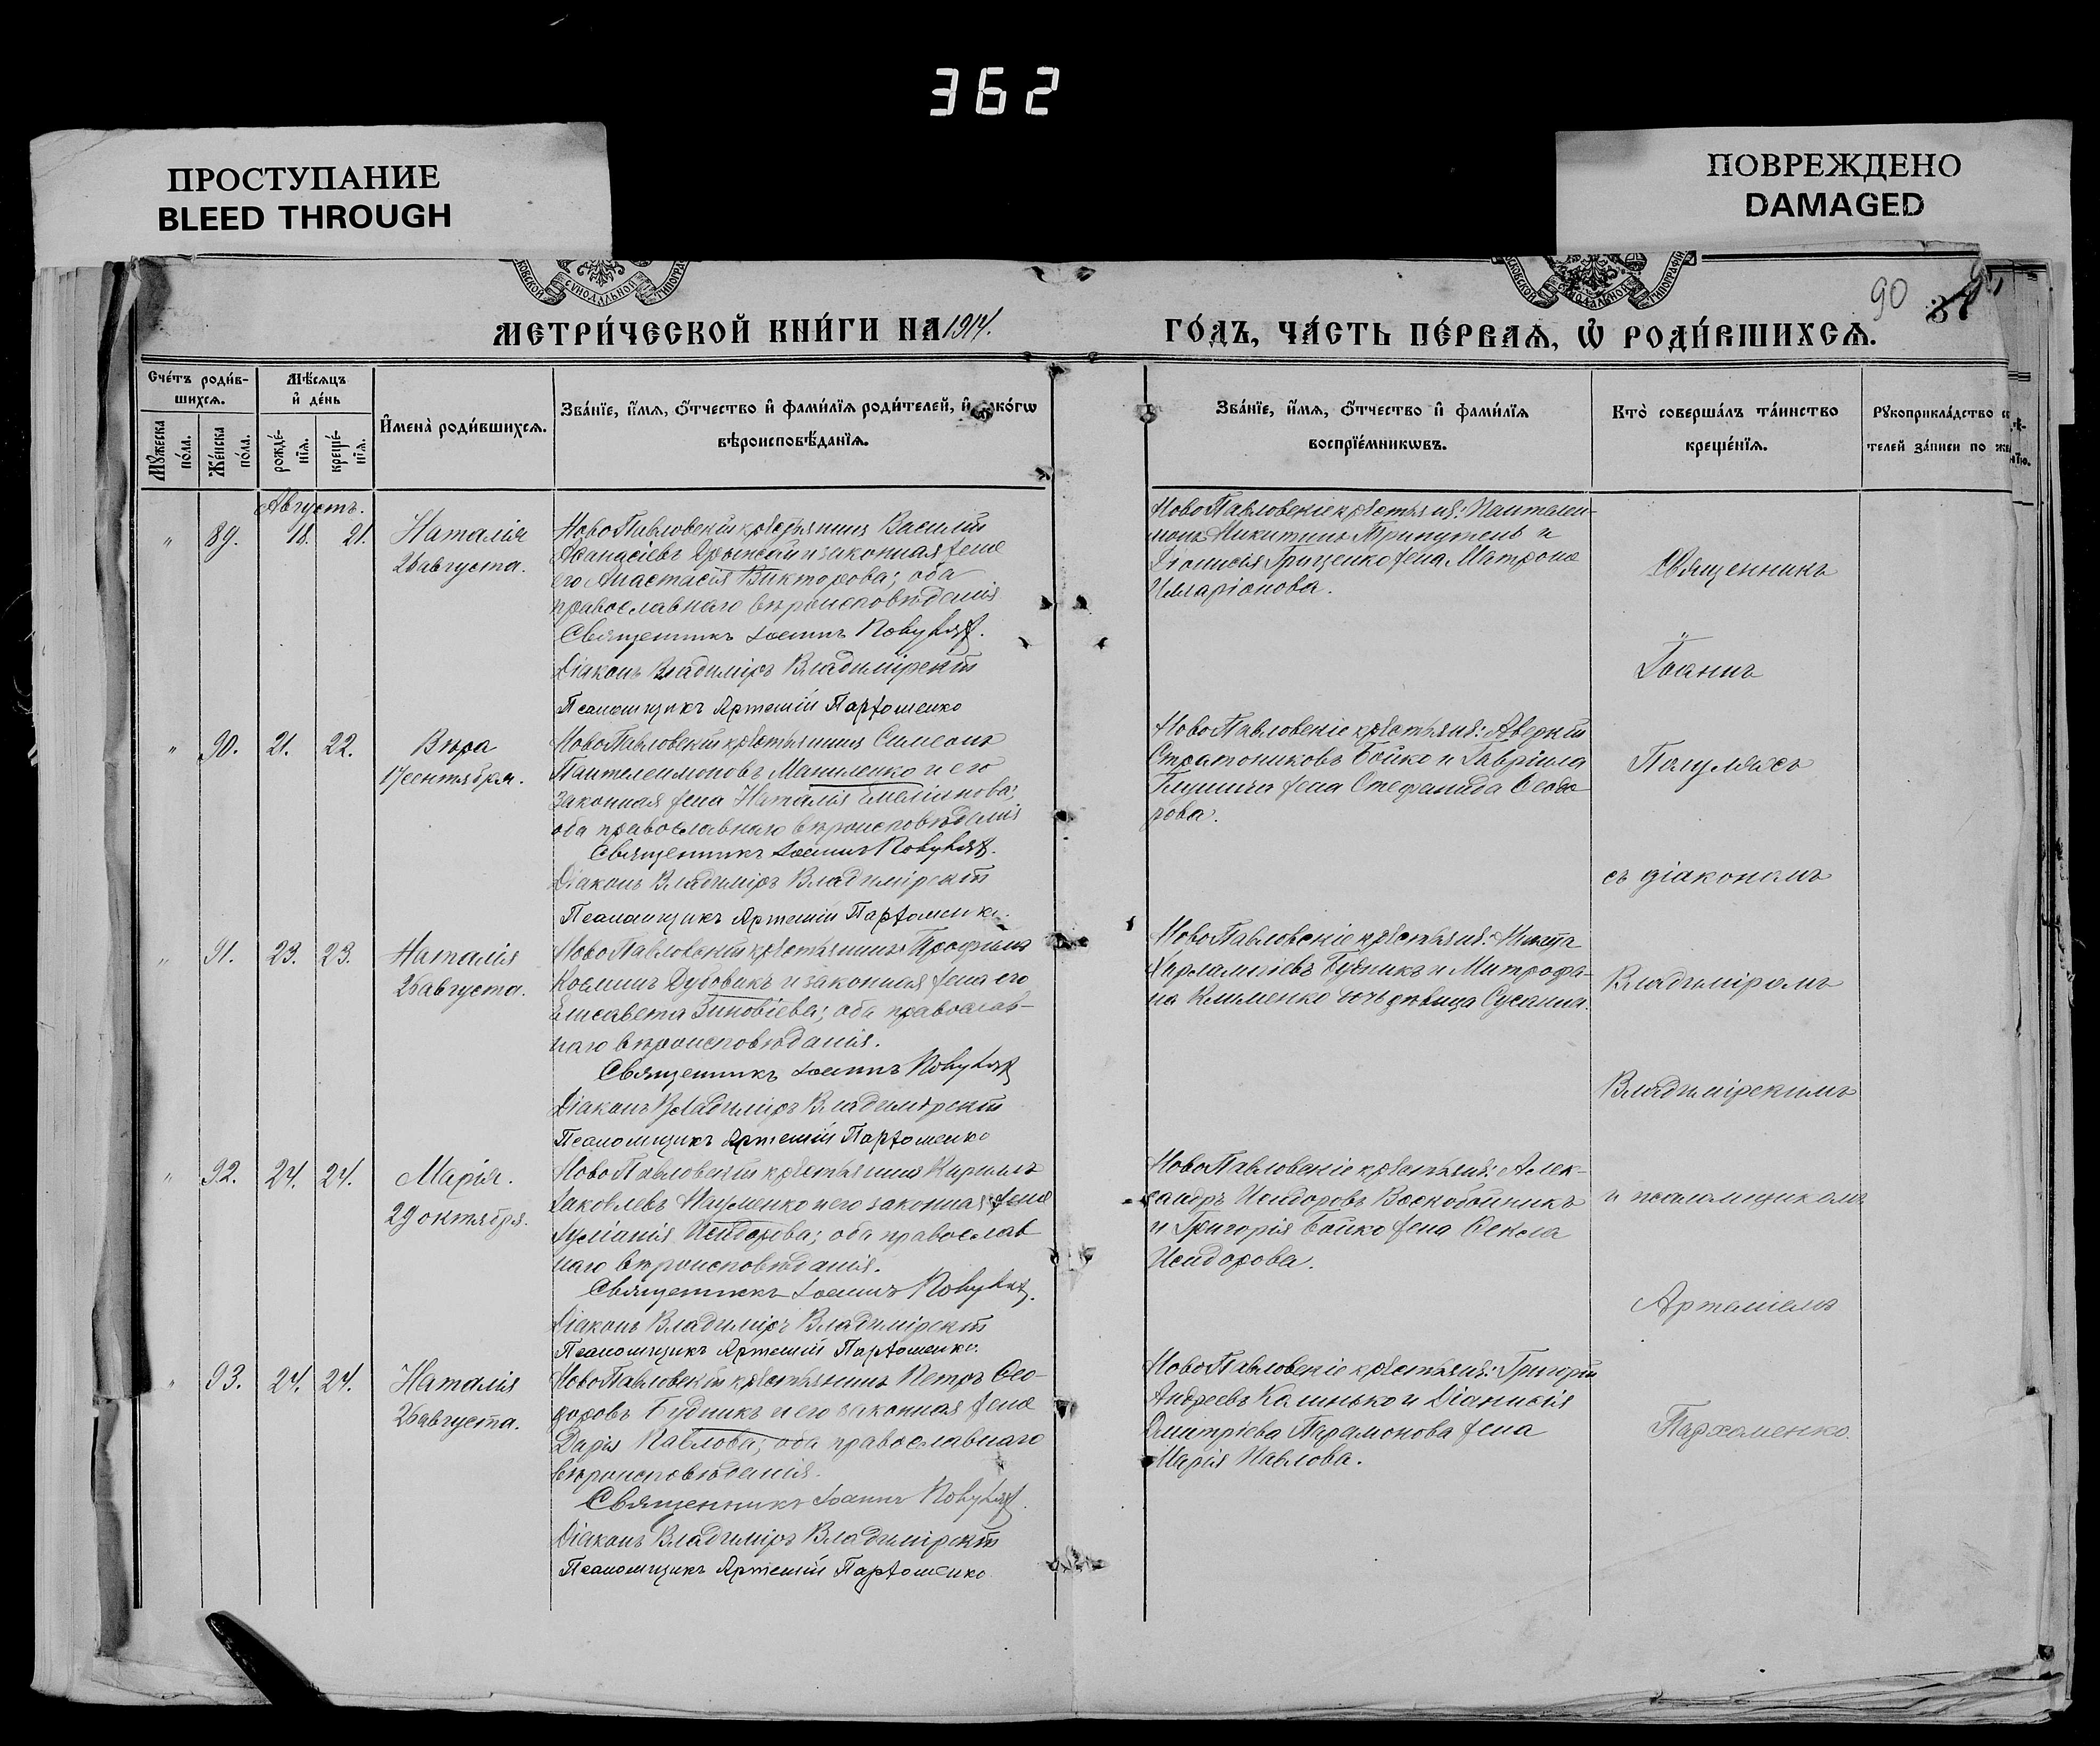 362
ПРОСТУПАНИЕ
BLEED THROUGH
ПОВРЕЖДЕНО
DAMAGED
МЕТРИ́ЧЕСКОЙ КНИ́ГИ НА 1914.
ГО́ДЪ, ЧА́СТЬ ПЕ́РВАѦ, Ѡ҆ РОДИ́ВШИХСѦ.
90
Сче́тъ роди́в-
шихсѧ.
Мѣ́сѧцъ
и҆ де́нь
И҆мена̀ роди́вшихсѧ.
Зва́нїе, и҆́мѧ, ѻ҆́тчество и҆ фами́лїѧ роди́телей, и҆ како́гѡ
вѣроисповѣ́данїѧ.
Зва́нїе, и҆́мѧ, ѻ҆́тчество и҆ фами́лїѧ
воспрїе́мникѡвъ.
Кто̀ соверша́лъ та́инство
креще́нїѧ.
Рꙋкоприкла́дство
телей за́писи по
Мꙋ́жеска
по́ла.
Же́нска
по́ла.
рожде́-
нїѧ.
креще́-
нїѧ.
Августъ.
" 89. 18. 21. Наталія
26 августа.
НовоПавловскій крестьянинъ Василій
и законная жена
его Анастасія Викторова; оба
православнаго вѣроисповѣданія
Священникъ Іоаннъ Полуляхъ.
Діаконъ Владиміръ Владимірскій
Псаломщикъ Артемій Пархоменко
НовоПавловскіе крестьяне: Пантелеи-
монъ Никитинъ Трипутень и
Діонисія Гриценко жена Матрона
Иларіонова.
" 90. 21. 22. Вѣра
17 сентября.
НовоПавловскій крестьянинъ Симеонъ
Пантелеимоновъ Маниленко и его
законная жена Наталія Емеліанова;
оба православнаго вѣроисповѣданія
Священникъ Іоаннъ Полуляхъ.
Діаконъ Владиміръ Владимірскій
Псаломщикъ Артемій Пархоменко.
НовоПавловскіе крестьяне: Аверкій
Стратониковъ Бойко и Гавріила
жена Стефанида Ѳеодо-
рова.
" 91. 23. 23. Наталія
26 августа.
НовоПавловскій крестьянинъ Трофимъ
Косминъ Дубовикъ и законная жена его
Елисавета Зиновіева; оба православ-
наго вѣроисповѣданія.
Священникъ Іоаннъ Полуляхъ
Діаконъ Владиміръ Владимірскій
Псаломщикъ Артемій Пархоменко
НовоПавловскіе крестьяне: Никита
Харлампіевъ Будникъ и Митрофа-
на Клименко дочь дѣвица Сусанна.
" 92. 24. 24. Марія.
29 октября.
НовоПавловскій крестьянинъ Кириллъ
Іаковлевъ Науменко и его законная жена
Іуліанія Исидорова; оба православ
наго вѣроисповѣданія.
Священникъ Іоаннъ Полуляхъ.
Діаконъ Владиміръ Владимірскій
Псаломщикъ Артемій Пархоменко.
НовоПавловскіе крестьяне: Алек-
сандръ Исидоровъ Воскобойникъ
и Григорія Бойко жена Ѳекла
Исидорова.
" 93. 24. 24. Наталія
26 августа.
НовоПавловскій крестьянинъ Петръ Ѳео-
доровъ Будникъ и его законная жена
Дарія Павлова; оба православнаго
вѣроисповѣданія.
Священникъ Іоаннъ Полуляхъ.
Діаконъ Владиміръ Владимірскій
Псаломщикъ Артемій Пархоменко
НовоПавловскіе крестьяне: Григорій
Андреевъ Калинько и Діонисія
Дмитріева Парамонова жена
Марія Павлова.
Священникъ
Іоаннъ
Полуляхъ
съ діакономъ
Владиміромъ
Владимірскимъ
и псаломщикомъ
Артеміемъ
Пархоменко.